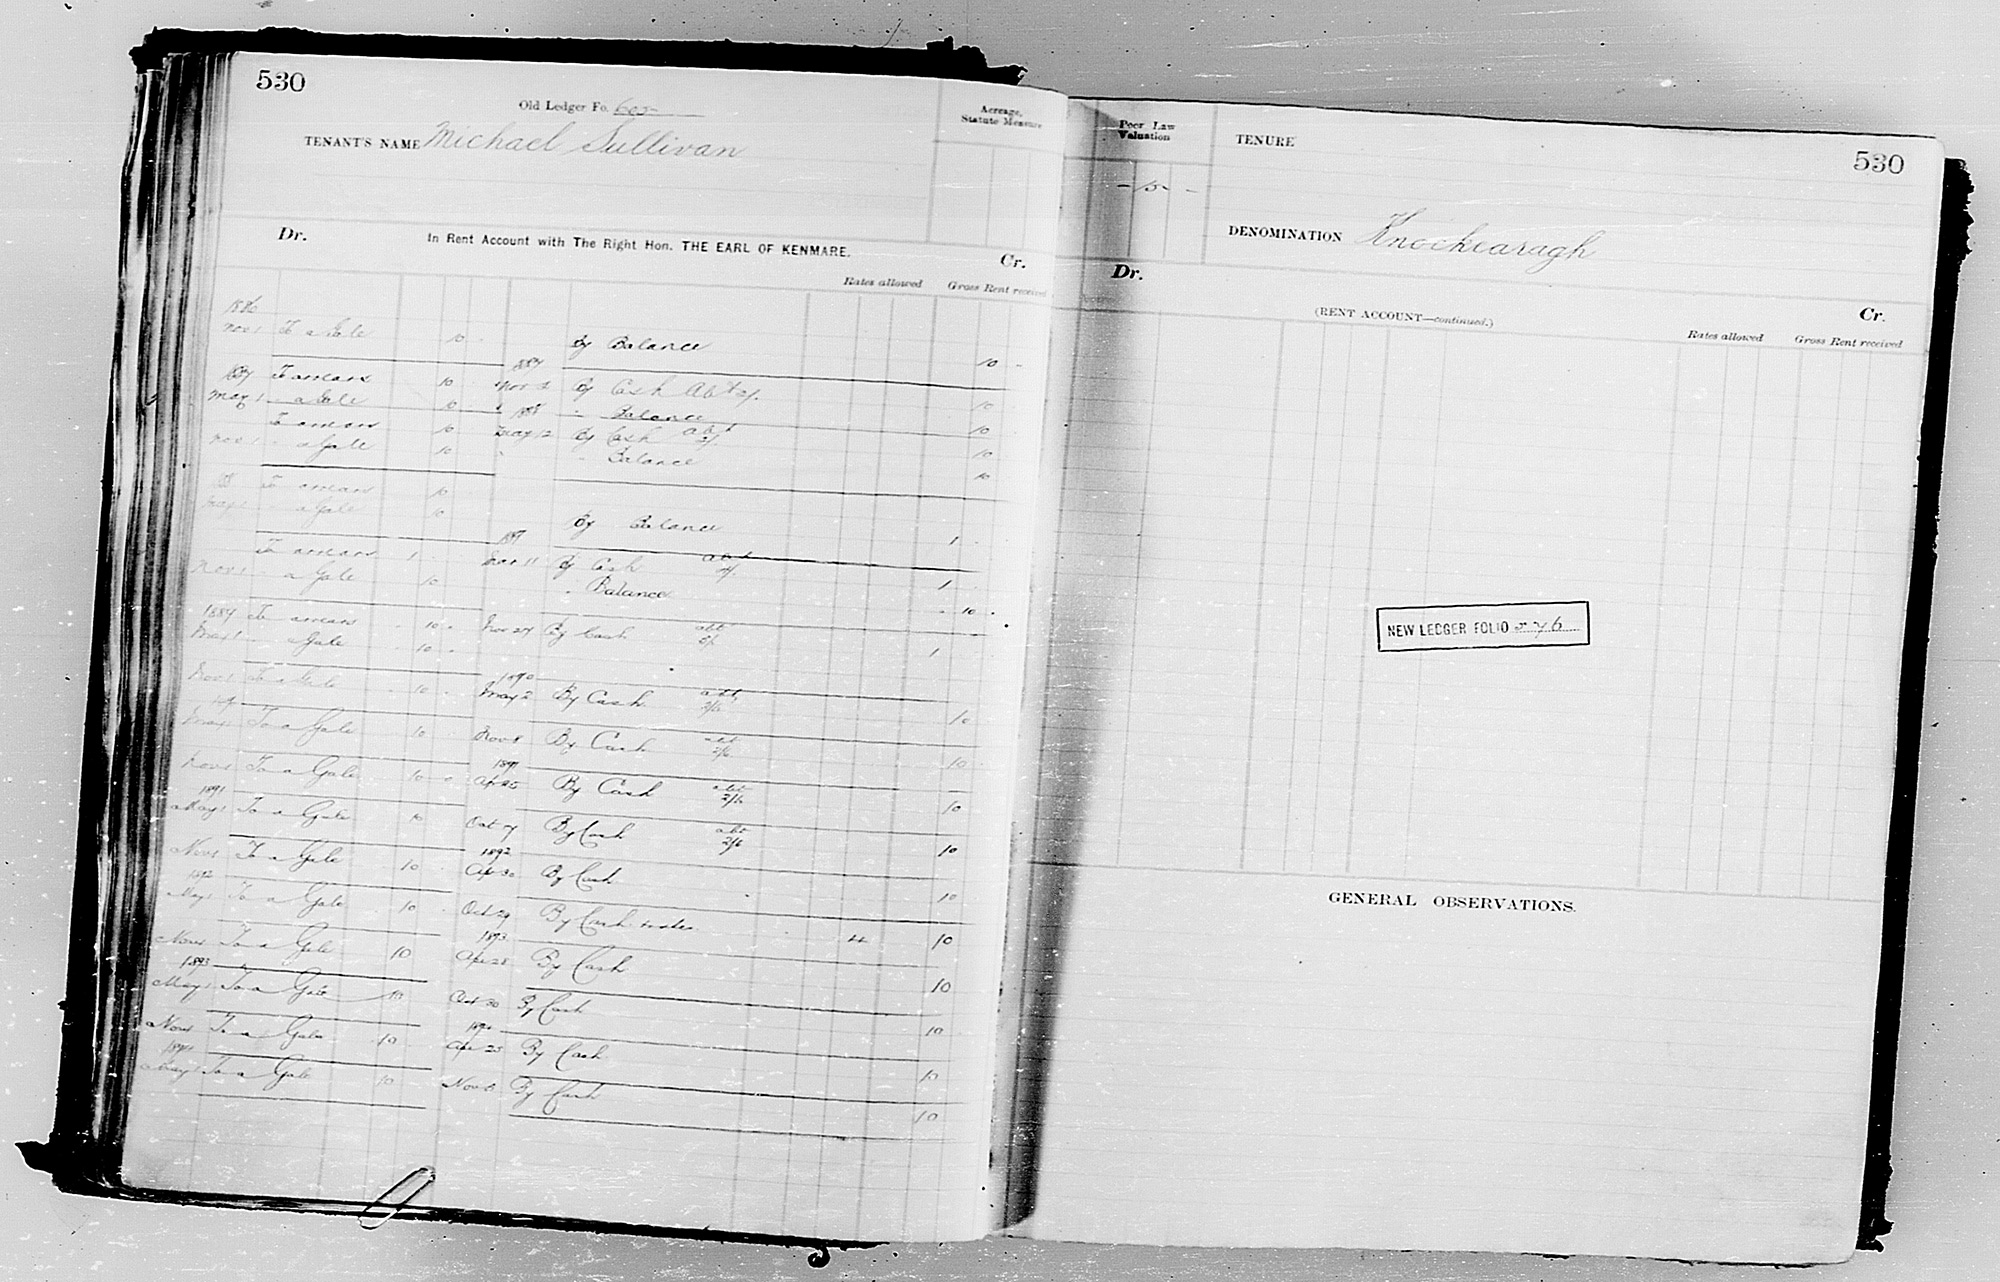 530
Old Ledger Fo. 605
Acreage, Statute Measure
TENANT'S NAME Michael Sullivan
Dr. In Rent Account with The Right Hon. THE EARL OF KENMARE. Cr.
Rates allowed Gross Rent received
1886
Nov 1 To a Gale 10 By Balance 10
1887
1887 To arrears 10 Nov 2 By Cash Abt 10
May 1 " a Gale 10 " Balance 10
1888
To arrears 10 May 12 By Cash abt 10
Nov 1 " a Gale 10 " Balance 10
88 To arrears 10
May 1 " a Gale 10 By Balance 1
To arrears 1 By Cash abt 1
Nov 1 " a Gale 10 " Balance 10
1889 To arrears 10 Nov 27 By Cash abt 1
May 1 " a Gale 10
1890
Nov 1 To a Gale 10 May 2 By Cash abt 2/6 10
May 1 To a Gale 10 Nov 8 By Cash abt 2/6 10
1891
Nov 1 To a Gale 10 Apl 25 By Cash abt 2/6 10
1891
May 1 To a Gale 10 Oct 27 By Cash abt 2/6 10
1892
Nov 1 To a Gale 10 Apl 30 By Cash 10
1892
May 1 To a Gale 10 Oct 29 By Cash & rates 4 10
1893
Nov 1 To a Gale 10 Apl 28 By Cash 10
1893
May 1 To a Gale 10 Oct 30 By Cash 10
1894
Nov 1 To a Gale 10 Apl 25 By Cash 10
1894
May 1 To a Gale 10 Nov By Cash 10
Poor Law Valuation
TENURE
530
- 15 -
DENOMINATION Knockearagh
Dr.
(RENT ACCOUNT—continued.)
Cr.
Rates allowed Gross Rent received
NEW LEDGER FOLIO 576
GENERAL OBSERVATIONS.